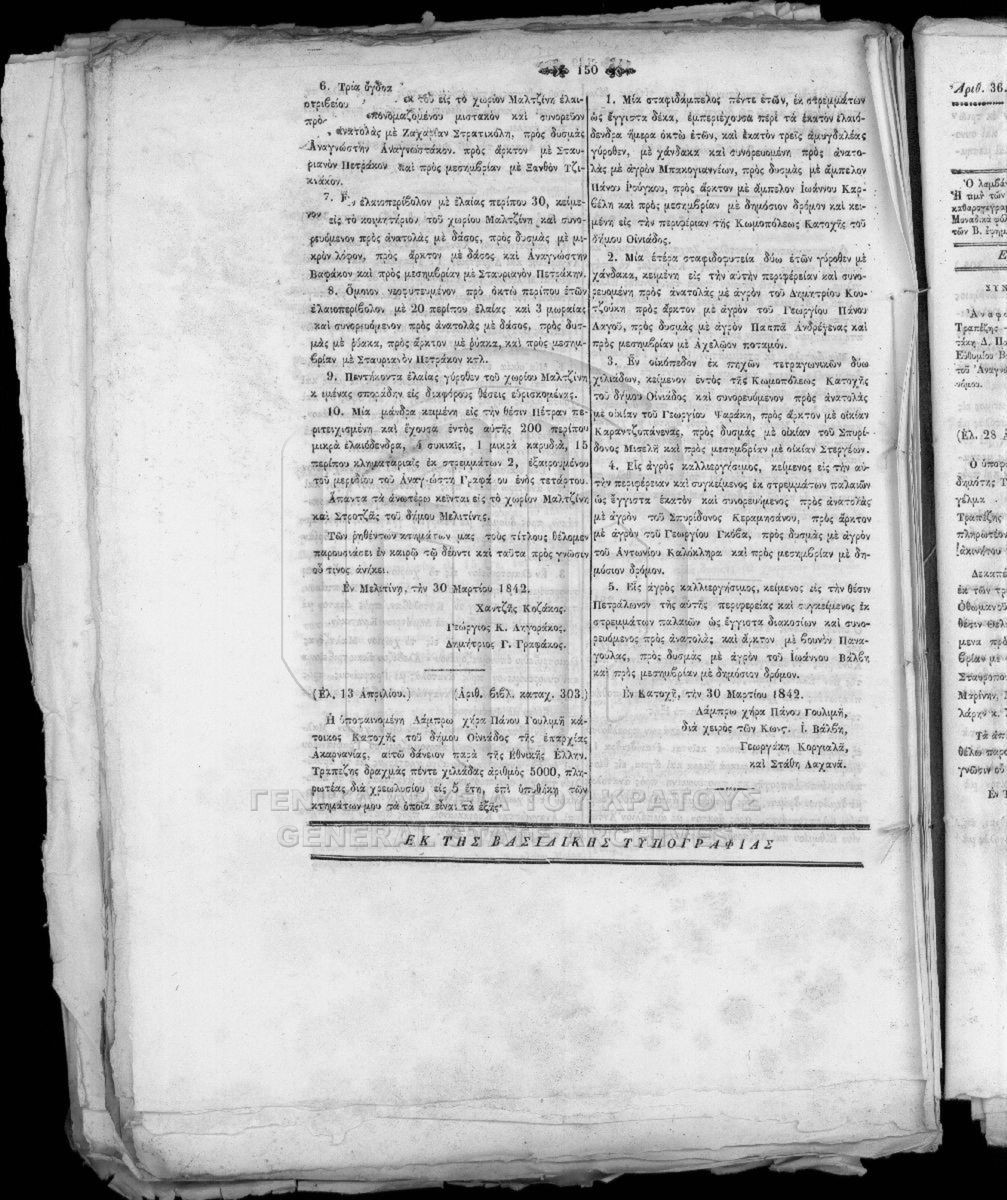 150
6. Τρία ὄγδοα
ἐκ τοῦ εἰς τὸ χωρίον Μαλτζίνη ἐλαι-
οτριβείου
ἐπονομαζομένου μιστακὸν καὶ συνορεῦον
πρὸ
ἀνατολὰς μὲ Ζαχαρίαν Στρατικόλη, πρὸς δυσμὰς
Ἀναγνώστην Ἀναγνωστάκον. πρὸς ἄρκτον μὲ Σταυ-
ριανὸν Πετράκον καὶ πρὸς μεσημβρίαν μὲ Ξανθὸν Τζι-
κνάκον.
7. Ἓν ἐλαιοπερίβολον μὲ ἐλαίας περίπου 30, κείμε-
νον εἰς τὸ κοιμητήριον τοῦ χωρίου Μαλτζίνη καὶ συνο-
ρευόμενον πρὸς ἀνατολὰς μὲ δάσος, πρὸς δυσμὰς μὲ μι-
κρὸν λόφον, πρὸς ἄρκτον μὲ δάσος καὶ Ἀναγνώστην
Βαφάκον καὶ πρὸς μεσημβρίαν μὲ Σταυριανὸν Πετράκην.
8. Ὅμοιον νεοφυτευμένον πρὸ ὀκτὼ περίπου ἐτῶν
ἐλαιοπερίβολον μὲ 20 περίπου ἐλαίας καὶ 3 μωραίας
καὶ συνορευόμενον πρὸς ἀνατολὰς μὲ δάσος, πρὸς δυσ-
μὰς μὲ ῥύακα, πρὸς ἄρκτον μὲ ῥύακα, καὶ πρὸς μεσημ-
βρίαν μὲ Σταυριανὸν Πετράκον κτλ.
9. Πεντήκοντα ἐλαίας γύροθεν τοῦ χωρίου Μαλτζίνη
κειμένας σποράδην εἰς διαφόρους θέσεις εὑρισκομένας.
10. Μία μάνδρα κειμένη εἰς τὴν θέσιν Πέτραν πε-
ριτειχισμένη καὶ ἔχουσα ἐντὸς αὐτῆς 200 περίπου
μικρὰ ἐλαιόδενδρα, 4 συκιαῖς, 1 μικρὰ καρυδιά, 15
περίπου κληματαριαῖς ἐκ στρεμμάτων 2, ἐξαιρουμένου
τοῦ μεριδίου τοῦ Ἀναγνώστη Γραφάκου ἑνὸς τετάρτου.
Ἅπαντα τὰ ἀνωτέρω κεῖνται εἰς τὸ χωρίον Μαλτζίνη
καὶ Στροτζᾶς τοῦ δήμου Μελιτίνης.
Τῶν ῥηθέντων κτημάτων μας τοὺς τίτλους θέλομεν
παρουσιάσει ἐν καιρῷ τῷ δέοντι καὶ ταῦτα πρὸς γνῶσιν
οὗ τινος ἀνήκει.
Ἐν Μελιτίνῃ, τὴν 30 Μαρτίου 1842.
Χαντζῆς Κοζάκος.
Γεώργιος Κ. Ληγοράκος.
Δημήτριος Γ. Γραφάκος.
(Ἐλ, 13 Ἀπριλίου.) (Ἀριθ. βιβλ. καταχ. 303.)
Ἡ ὑποφαινομένη Λάμπρω χήρα Πάνου Γουλιμῆ κά-
τοικος Κατοχῆς τοῦ δήμου Οἰνιάδος τῆς ἐπαρχίας
Ἀκαρνανίας, αἰτῶ δάνειον παρὰ τῆς Ἐθνικῆς Ἑλλην.
Τραπέζης δραχμὰς πέντε χιλιάδας ἀριθμὸς 5000, πλη-
ρωτέας διὰ χρεωλυσίου εἰς 5 ἔτη, ἐπὶ ὑποθήκῃ τῶν
κτημάτων μου τὰ ὁποῖα εἶναι τὰ ἑξῆς·
1. Μία σταφιδάμπελος πέντε ἐτῶν, ἐκ στρεμμάτων
ὡς ἔγγιστα δέκα, ἐμπεριέχουσα περὶ τὰ ἑκατὸν ἐλαιό-
δενδρα ἥμερα ὀκτὼ ἐτῶν, καὶ ἑκατὸν τρεῖς ἀμυγδαλέας
γύροθεν, μὲ χάνδακα καὶ συνορευομένη πρὸς ἀνατο-
λὰς μὲ ἀγρὸν Μπακογιαννέων, πρὸς δυσμὰς μὲ ἄμπελον
Πάνου Ρούγκου, πρὸς ἄρκτον μὲ ἄμπελον Ἰωάννου Καρ-
βέλη καὶ πρὸς μεσημβρίαν μὲ δημόσιον δρόμον καὶ κει-
μένη εἰς τὴν περιφέριαν τῆς Κωμοπόλεως Κατοχῆς τοῦ
δήμου Οἰνιάδος.
2. Μία ἑτέρα σταφιδοφυτεία δύω ἐτῶν γύροθεν μὲ
χάνδακα, κειμένη εἰς τὴν αὐτὴν περιφέρειαν καὶ συνο-
ρευομένη πρὸς ἀνατολὰς μὲ ἀγρὸν τοῦ Δημητρίου Κου-
τζούκη πρὸς ἄρκτον μὲ ἀγρὸν τοῦ Γεωργίου Πάνου
Λαγοῦ, πρὸς δυσμὰς μὲ ἀγρὸν Παππᾶ Ἀνδρέγενας καὶ
πρὸς μεσημβρίαν μὲ Ἀχελῷον ποταμόν.
3. Ἓν οἰκόπεδον ἐκ πηχῶν τετραγωνικῶν δύω
χιλιάδων, κείμενον ἐντὸς τῆς Κωμοπόλεως Κατοχῆς
τοῦ δήμου Οἰνιάδος καὶ συνορευόμενον πρὸς ἀνατολὰς
μὲ οἰκίαν τοῦ Γεωργίου Ψαράκη, πρὸς ἄρκτον μὲ οἰκίαν
Καραντζοπάνενας, πρὸς δυσμὰς μὲ οἰκίαν τοῦ Σπυρί-
δονος Μισελῆ καὶ πρὸς μεσημβρίαν μὲ οἰκίαν Στεργέων.
4. Εἷς ἀγρὸς καλλιεργήσιμος, κείμενος εἰς τὴν αὐ-
τὴν περιφέρειαν καὶ συγκείμενος ἐκ στρεμμάτων παλαιῶν
ὡς ἔγγιστα ἑκατὸν καὶ συνορευόμενος πρὸς ἀνατολὰς
μὲ ἀγρὸν τοῦ Σπυρίδονος Κεραμησάνου, πρὸς ἄρκτον
μὲ ἀγρὸν τοῦ Γεωργίου Γκόβα, πρὸς δυσμὰς μὲ ἀγρὸν
τοῦ Ἀντωνίου Καλόκληρα καὶ πρὸς μεσημβρίαν μὲ δη-
μόσιον δρόμον.
5. Εἷς ἀγρὸς καλλιεργήσιμος, κείμενος εἰς τὴν θέσιν
Πετράλωνον τῆς αὐτῆς περιφερείας καὶ συγκείμενος ἐκ
στρεμμάτων παλαιῶν ὡς ἔγγιστα διακοσίων καὶ συνο-
ρευόμενος πρὸς ἀνατολὰς καὶ ἄρκτον μὲ βουνὸν Πανα-
γούλας, πρὸς δυσμὰς μὲ ἀγρὸν τοῦ Ἰωάννου Βάλβη
καὶ πρὸς μεσημβρίαν μὲ δημόσιον δρόμον.
Ἐν Κατοχῇ, τὴν 30 Μαρτίου 1842.
Λάμπρω χήρα Πάνου Γουλιμῆ,
διὰ χειρὸς τῶν Κωνς. Ι. Βάλβη,
Γεωργάκη Κοργιαλᾶ,
καὶ Στάθη Λαχανᾶ.
ΕΚ ΤΗΣ ΒΑΣΙΛΙΚΗΣ ΤΥΠΟΓΡΑΦΙΑΣ
ΓΕΝΙΚΑ ΑΡΧΕΙΑ ΤΟΥ ΚΡΑΤΟΥΣ
GENERAL STATE ARCHIVES
Ἀριθ. 36.
Ὁ λαμβάν
Ἡ τιμὴ τῶν
καθαρογεγραμ
Μοναδικὰ φύλ
τῶν Β. ἐφημ
Ε
ΣΥΝ
Ἀναφο
Τραπέζης
τάκη Δ. Πα
Εὐθυμίου Β
τοῦ Ἀναγνώ
νόμου.
(Ἐλ. 28 Ἀ
Ὁ ὑποφ
δημότης Τ
γέλμα
Τραπέζης
πληρωτέον
ἀκινήτου
Δεκαπέ
ἐκ τῶν τρ
Ὀθωμανοῦ
θέσιν Θελ
μενα πρὸ
βρίαν μὲ
Σταυροπο
Μαρίνην,
λάρην κ.
Τὰ ἀπ
θέλω παρο
γνῶσιν οὗ
Ἐν Τ